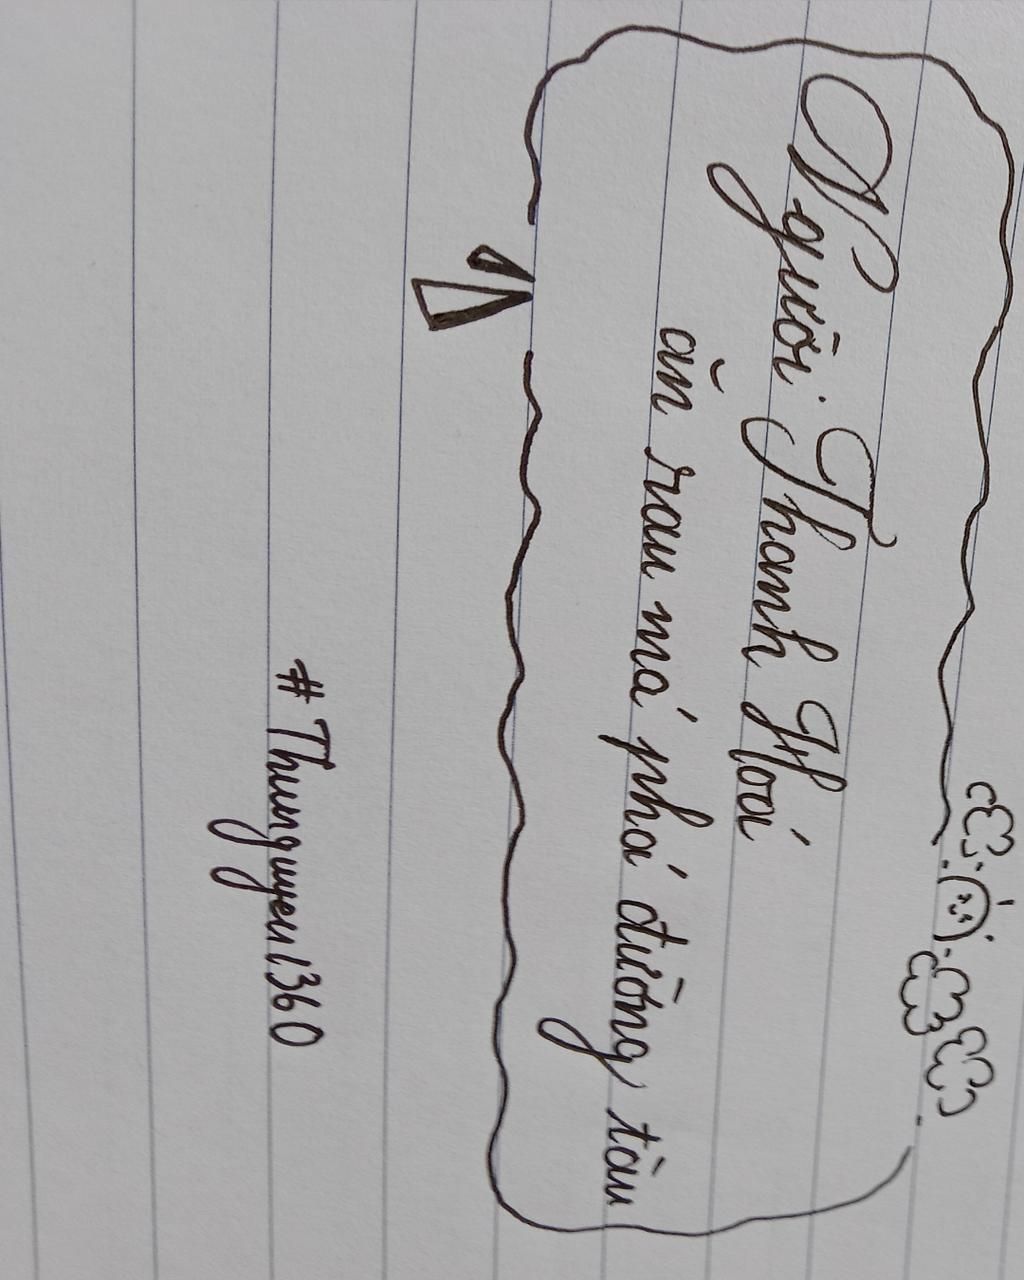 Người Thanh Hoá
ăn rau má phá đường tàu
# Thunguyen1360